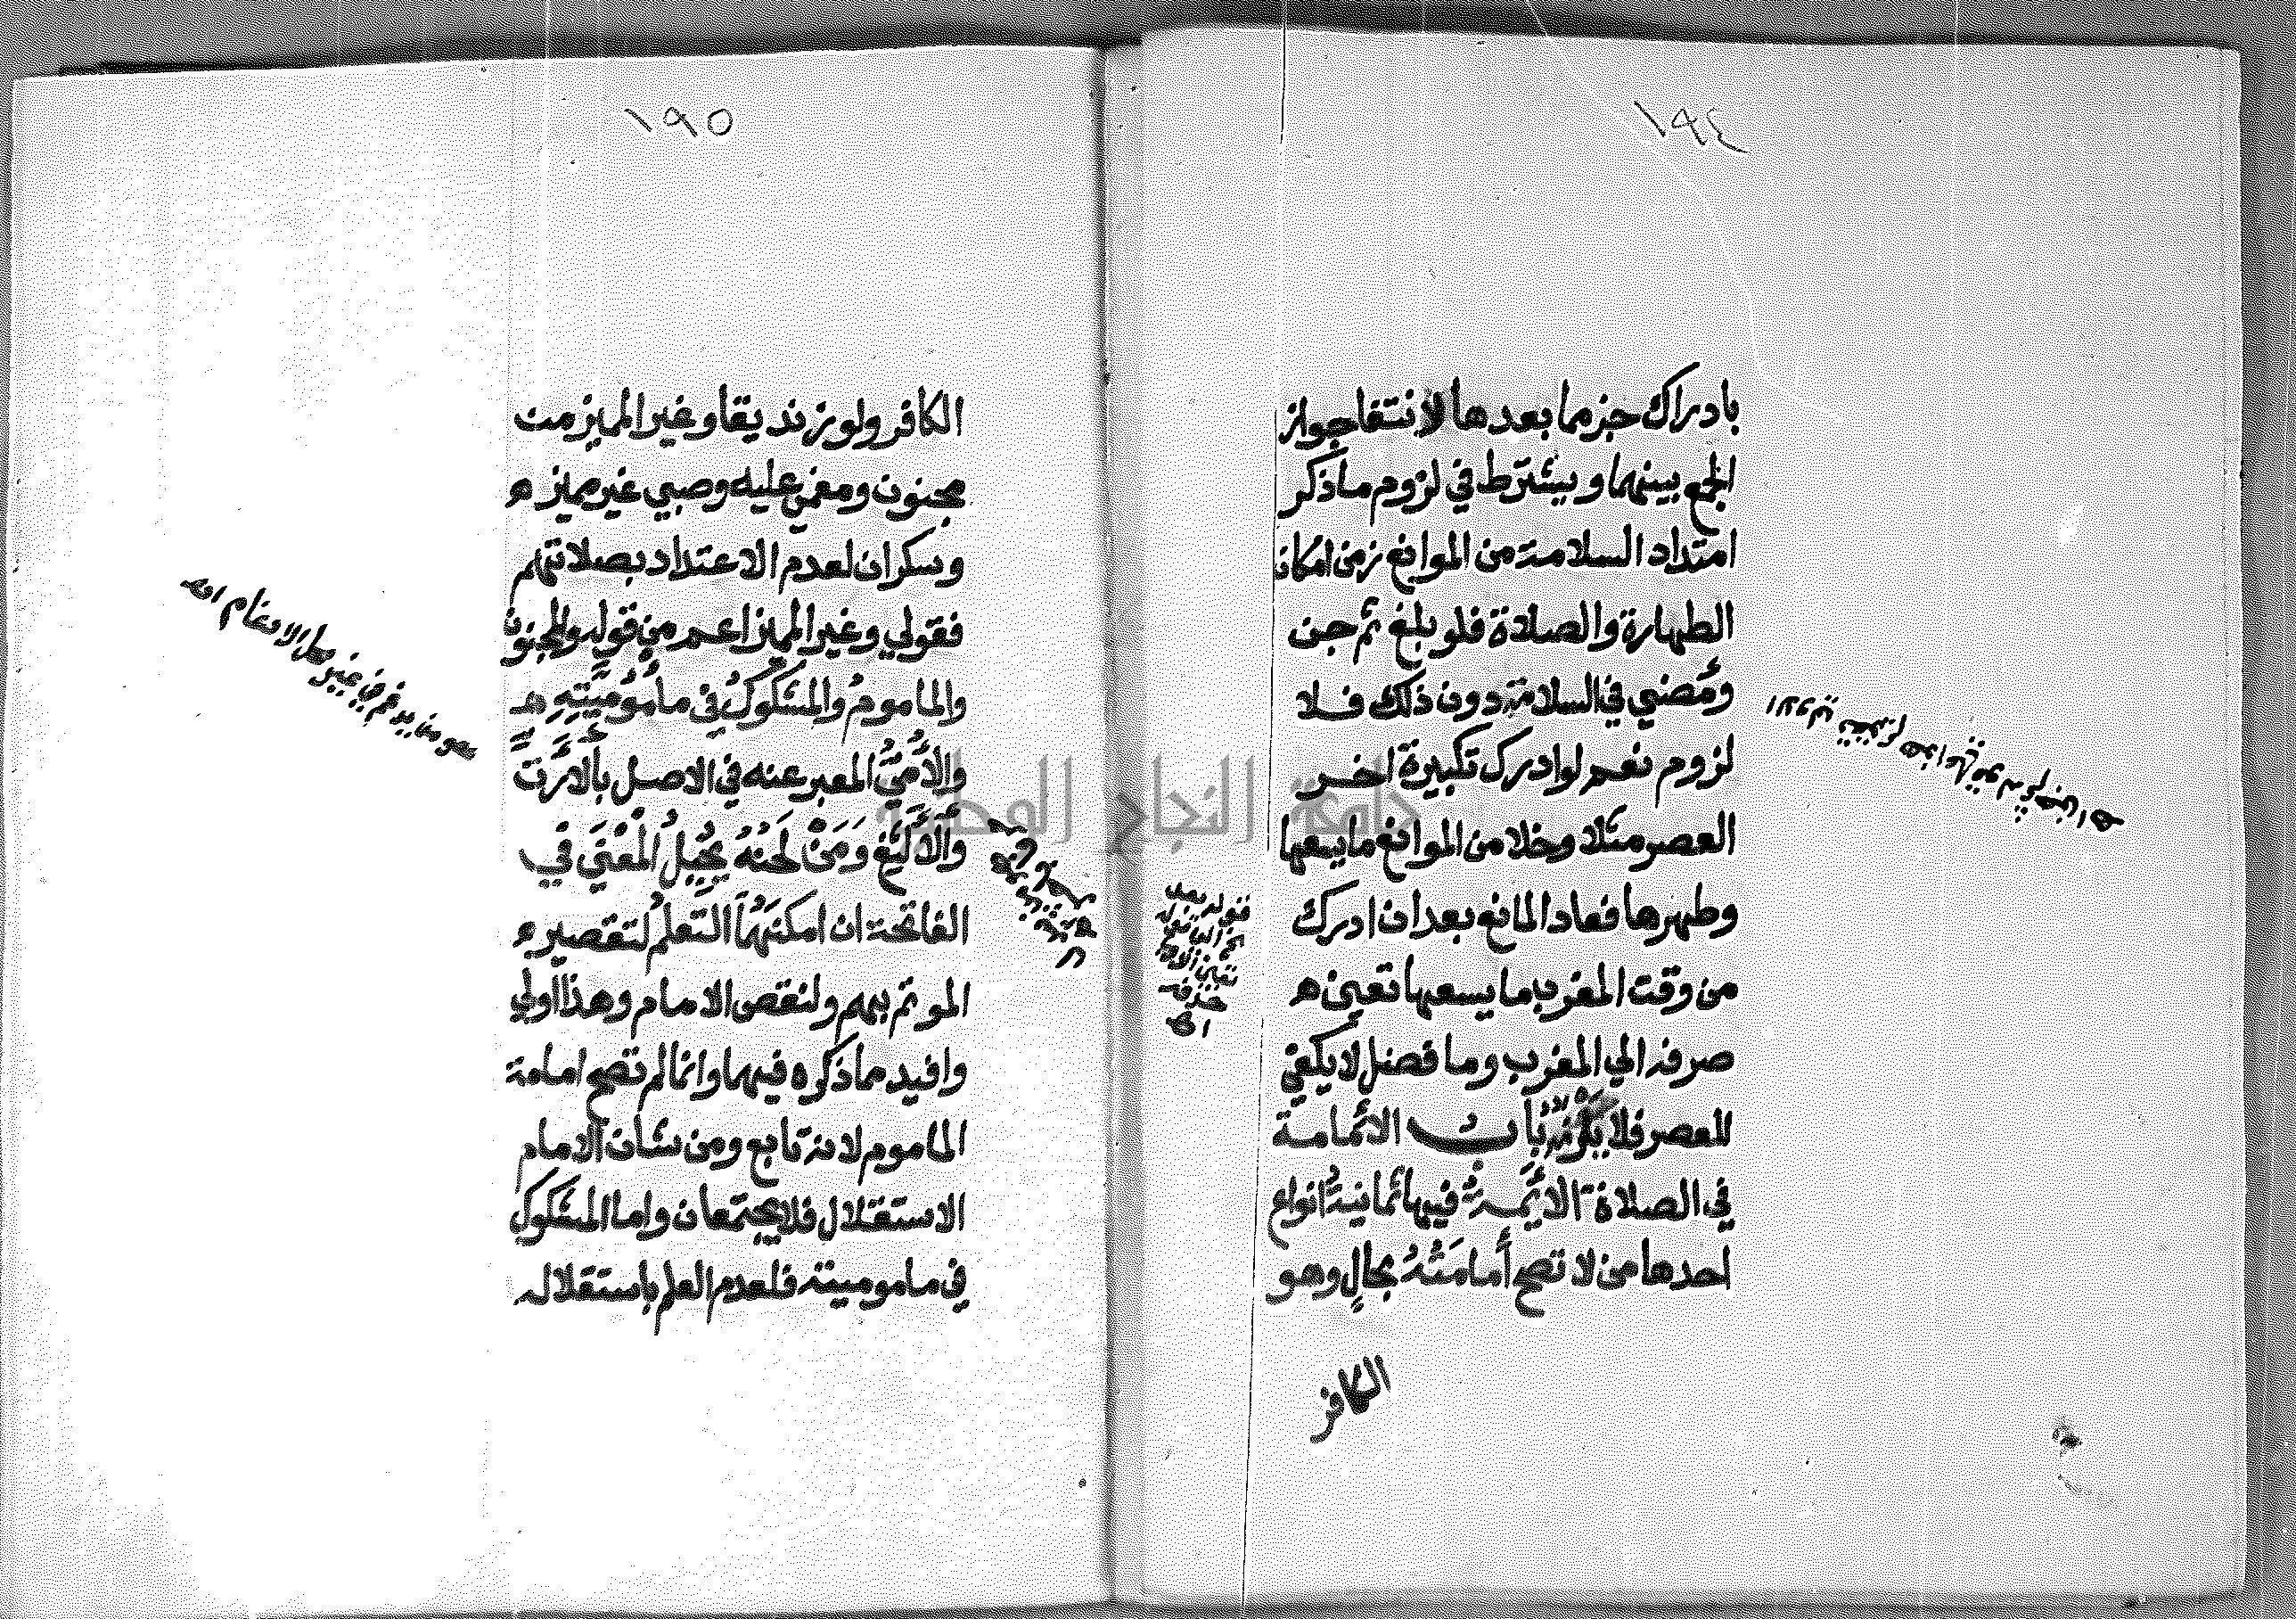 ١٩٤
بادراك جزمما بعدها لانتفا جواز
الجمع بينهما ويشترط في لزوم ماذكر
امتداد السلامة من الموانع زمن امكان
الطهارة والصلاة فلو بلغ ثم جن
ومضي في السلامة دون ذلك فلا
لزوم نعم لوادرك تكبيرة اخر
العصر مثلا وخلا من الموانع مايسعها
وطهرها فعاد المانع بعدان ادرك
من وقت المغرب مايسعها تعين ه
صرفه الي المغرب وما فضل لايكفي
للعصر فلا يلزمه باب الائمامة
في الصلاة الائمة فيها ثمانية انواع
احدها من لا تصح امامته بحال وهو
الكافر
١٩٥
الكافر ولو زنديقا وغير المميز من
مجنون ومغمي عليه وصبي غير مميز ه
وسكران لعدم الاعتداد بصلاتهم
فقولي وغير المميز اعم من قوله والمجنون
والماموم والمشكوك في مأموميته ه
والأمي المعبر عنه في الاصل بالأرت
والألثغ ومن لحنه يحيل المعني في
الفاتحة ان امكنهما التعلم لتقصيره
الموتم بهم ولنقص الامام وهذا اولي
وافيد مماذكره فيهما وانما لم تصح امامة
الماموم لانه تابع ومن شان الامام
الاستقلال فلا يجتمعان واما المشكوك
في ماموميته فلعدم العلم باستقلاله
هو من يدغم في غير محل الادغام اهـ